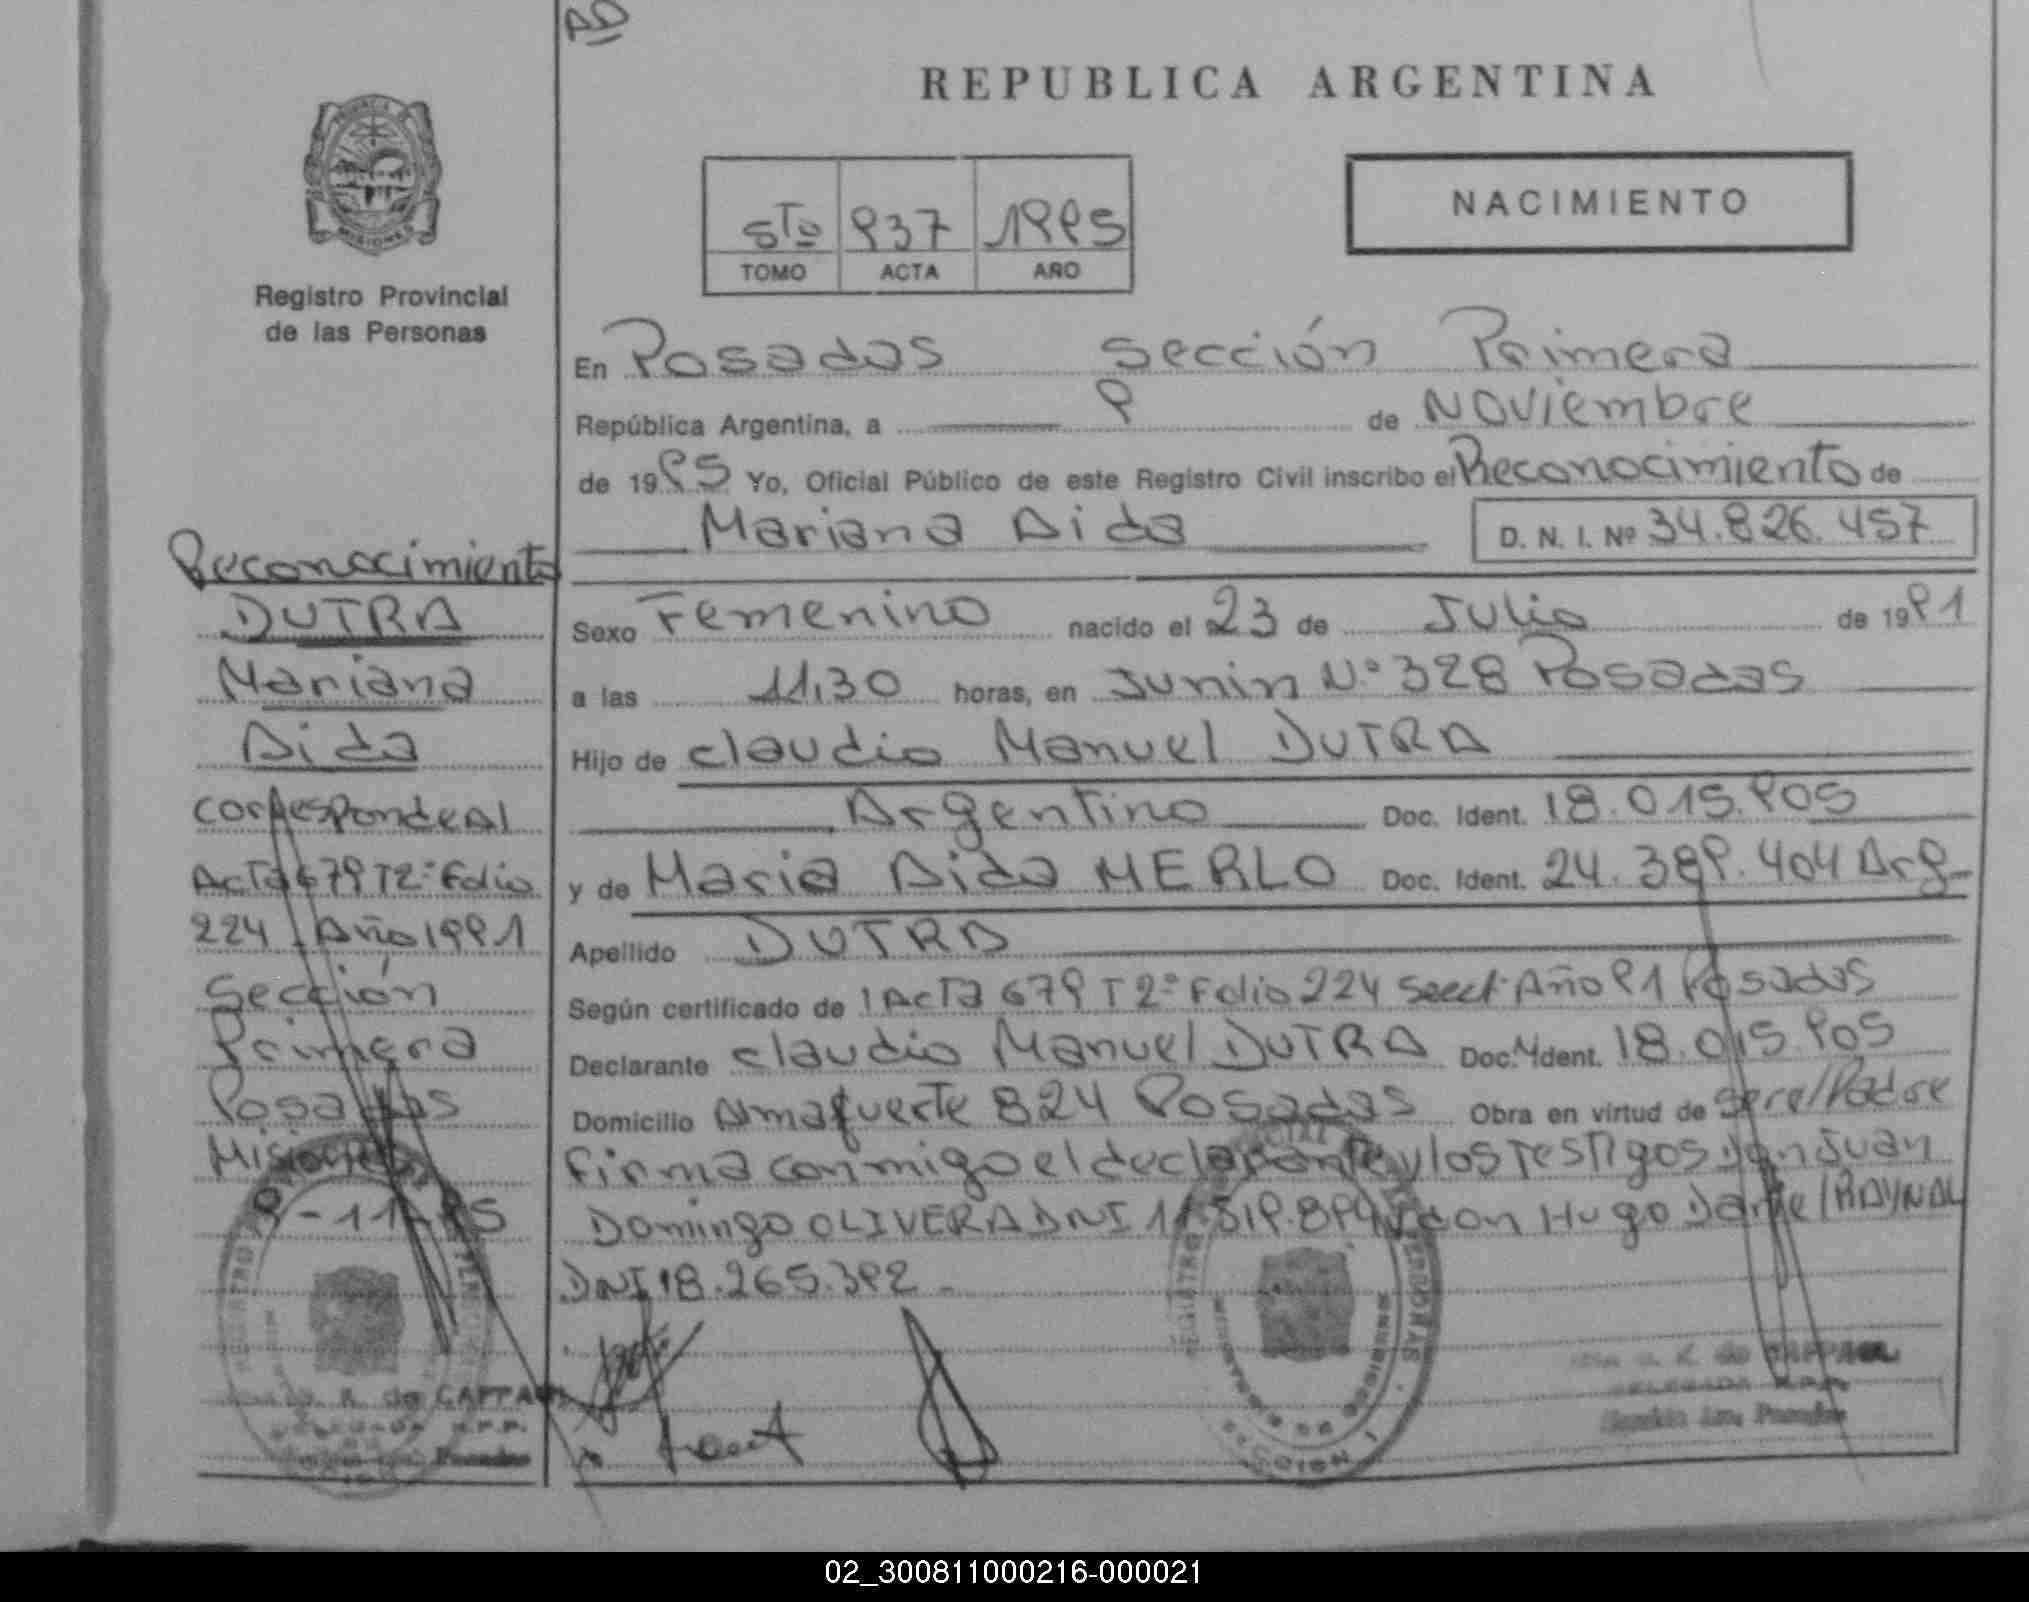 AD
REPUBLICA ARGENTINA
MISIONES
Registro Provincial
de las Personas
5To 937 1995
TOMO ACTA AÑO
NACIMIENTO
En Posadas Sección Primera
República Argentina, a 9 de Noviembre
de 1995 Yo, Oficial Público de este Registro Civil inscribo el Reconocimiento de
Mariana Aida D. N. I. Nº 34.826.457
Sexo Femenino nacido el 23 de Julio de 1991
a las 11,30 horas, en Junin N.º 328 Posadas
Hijo de Claudio Manuel DUTRA
Argentino Doc. Ident. 18.015.905
y de Maria Aida MERLO Doc. Ident. 24.389.404 Arg
Apellido DUTRA
Según certificado de 1 Acta 679 T 2º Folio 224 Año 91 Posadas
Declarante Claudio Manuel DUTRA Doc. Ident. 18.015.905
Domicilio Almafuerte 824 Posadas Obra en virtud de ser el Padre
Firma conmigo el declarante y los Testigos don Juan
Domingo OLIVERA DNI don Hugo Dante RAYNAL
DNI 18.265.392.
Reconocimiento
DUTRA
Mariana
Aida
Corresponde Al
Acta 679 T2º Folio
224 Año 1991
Sección
Primera
Posadas
Misiones
9-11-95
02_300811000216-000021